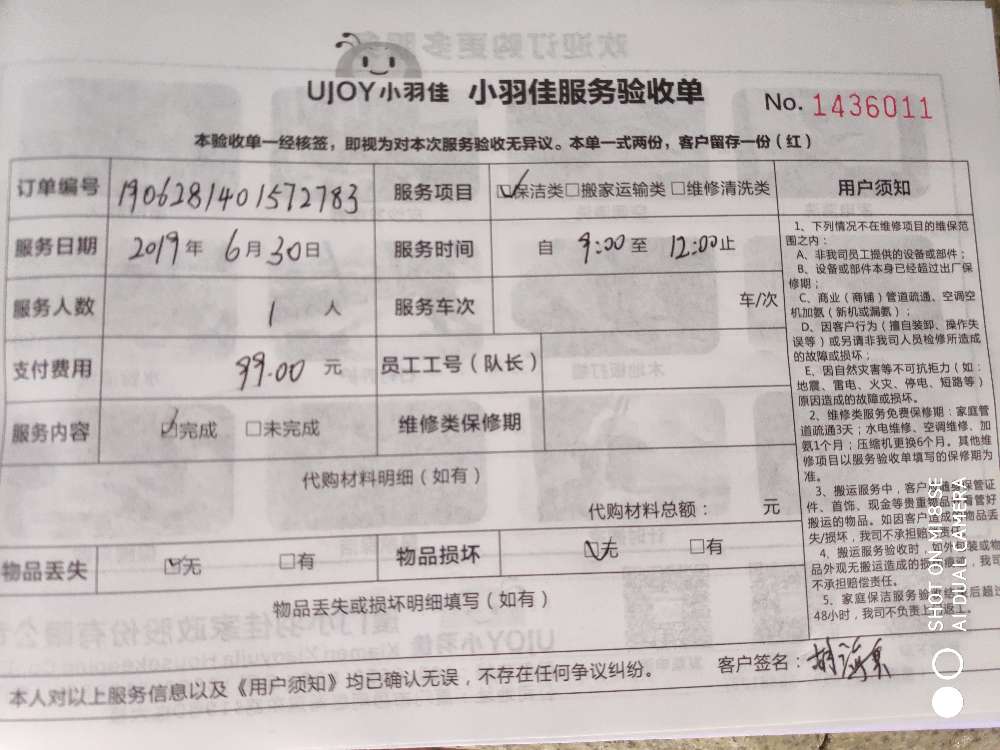 UJOY小羽佳 小羽佳服务验收单 No. 1436011
本验收单一经核签，即视为对本次服务验收无异议。本单一式两份，客户留存一份（红）
订单编号 1906281401572783 服务项目 ☑保洁类□搬家运输类□维修清洗类
服务日期 2019年 6月30日 服务时间 自 9:00至 12:00止
服务人数 1 人 服务车次 车/次
支付费用 99.00 元 员工工号（队长）
服务内容 ☑完成 □未完成 维修类保修期
代购材料明细（如有）
代购材料总额： 元
物品丢失 ☑无 □有 物品损坏 ☑无 □有
物品丢失或损坏明细填写（如有）
本人对以上服务信息以及《用户须知》均已确认无误，不存在任何争议纠纷。 客户签名：
用户须知
1、下列情况不在维修项目的维保范
围之内：
A、非我司员工提供的设备或部件；
B、设备或部件本身已经超过出厂保
修期；
C、商业（商铺）管道疏通、空调空
机加氨（新机或漏氨）；
D、因客户行为（擅自装卸、操作失
误等）或另请非我司人员检修所造成
的故障或损坏；
E、因自然灾害等不可抗拒力（如：
地震、雷电、火灾、停电、短路等）
原因造成的故障或损坏。
2、维修类服务免费保修期：家庭管
道疏通3天；水电维修、空调维修、加
氨1个月；压缩机更换6个月。其他维
修项目以服务验收单填写的保修期为
准。
3、搬运服务中，客户 保管证
件、首饰、现金等贵重物品 看管好
搬运的物品。如因客户造成 物品丢
失/损坏，我司不承担赔 责任
4、搬运服务验收时，如外包装或物
品外观无搬运造成的损 痕迹，我司
不承担赔偿责任。
5、家庭保洁服务验 结 后超过
48小时，我司不负责上 返工。
SHOT ON MI 8 SE
AI DUAL CAMERA